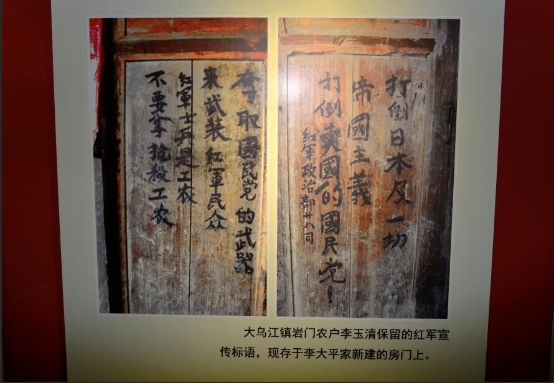 夺取國民党的武器
来武装红軍民众
红軍士兵是工农
不要拿槍殺工农
打倒日本及一切
帝國主義
打倒賣國的國民党！
红軍政治部
大乌江镇岩门农户李玉清保留的红军宣
传标语，现存于李大平家新建的房门上。